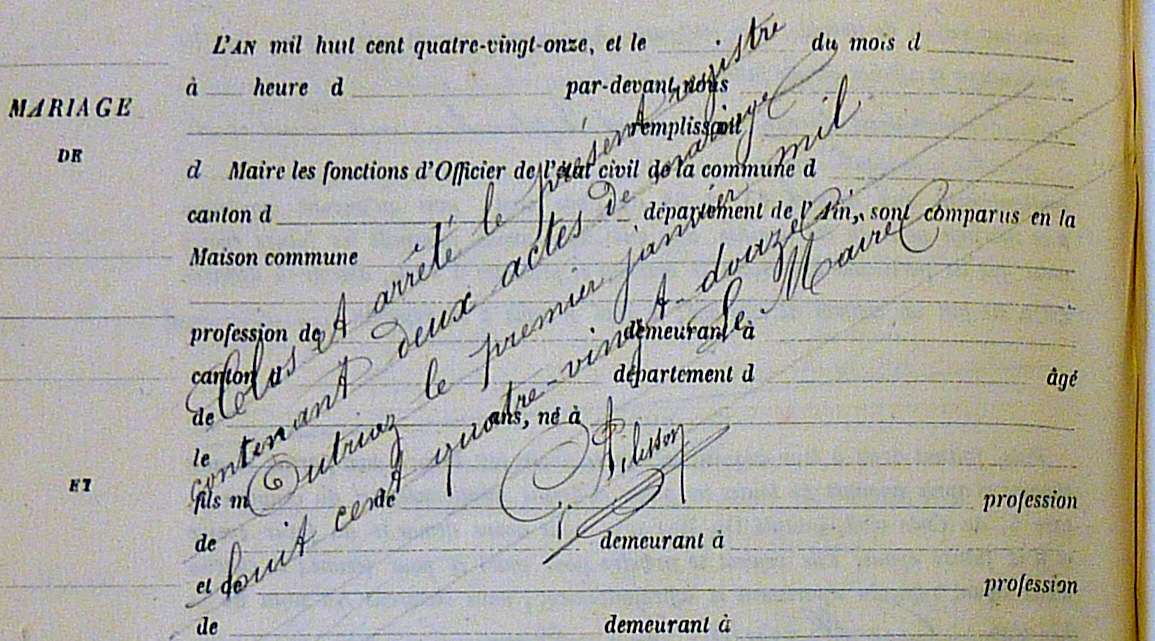 L'AN mil huit cent quatre-vingt-onze, et le du mois d
à heure d par-devant nous
MARIAGE
remplissant
DE
d Maire les fonctions d'Officier de l'état civil de la commune d
canton d département de l'Ain, sont comparus en la
Maison commune
profession de demeurant à
canton d département d âgé
de ans, né à
le
ET
fils m de profession
de demeurant à
et de profession
de demeurant à
Clos et arrêté le présent registre
contenant deux actes de mariage
Outriaz le premier janvier mil
huit cent quatre-vingt-douze
Le Maire